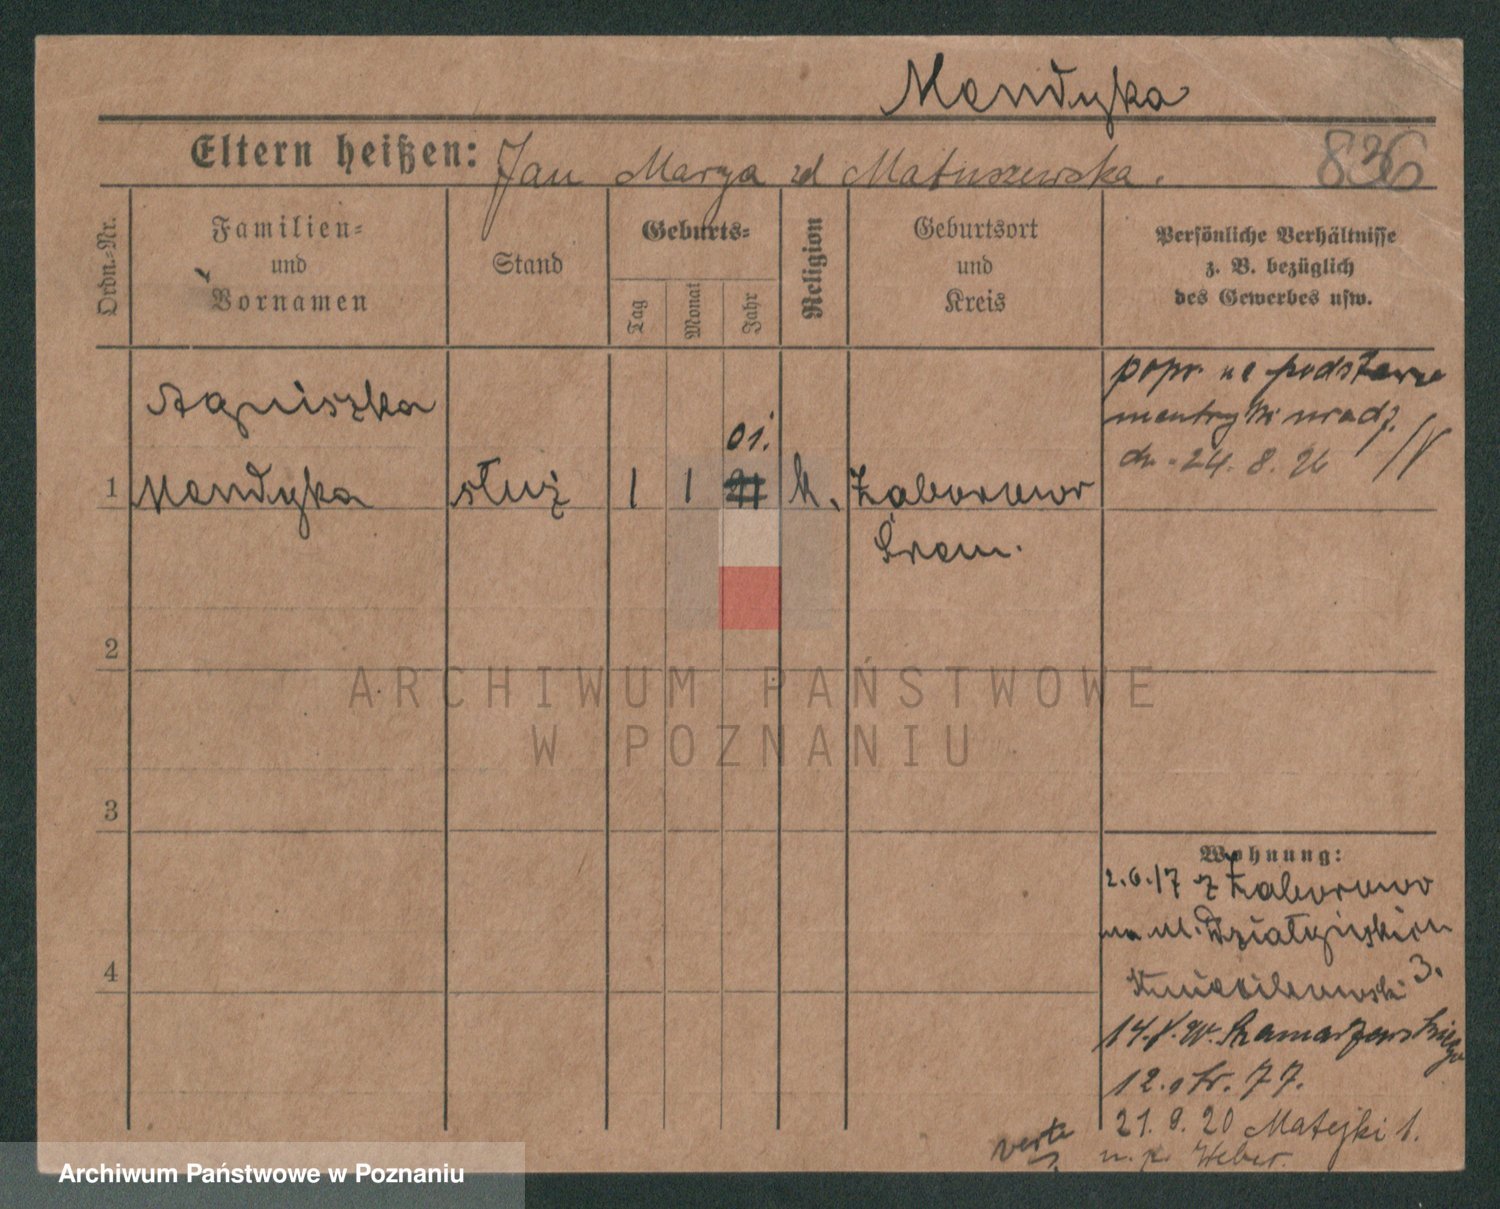 Mondyka
Eltern heißen: Jan Marya zd Matuszewska.
836
Ordn.-Nr.
Familien-
und
Vornamen
Stand
Geburts-
Tag
Monat
Jahr
Religion
Geburtsort
und
Kreis
Persönliche Verhältnisse
z. B. bezüglich
des Gewerbes usw.
popr. na podstawie
metryki urodz.
dn. 24. 8. 26
Agniszka
01.
1 Mondyka służ 1 1 21 k. Zaborowo
Śrem.
2
ARCHIWUM PAŃSTWOWE
W POZNANIU
3
4
Wohnung:
2.6.17 z Zaborowo
na ul. Działyńskich
3.
12. tr. 77.
21. 9. 20 Matejki 1.
n. p. Weber.
verte
Archiwum Państwowe w Poznaniu